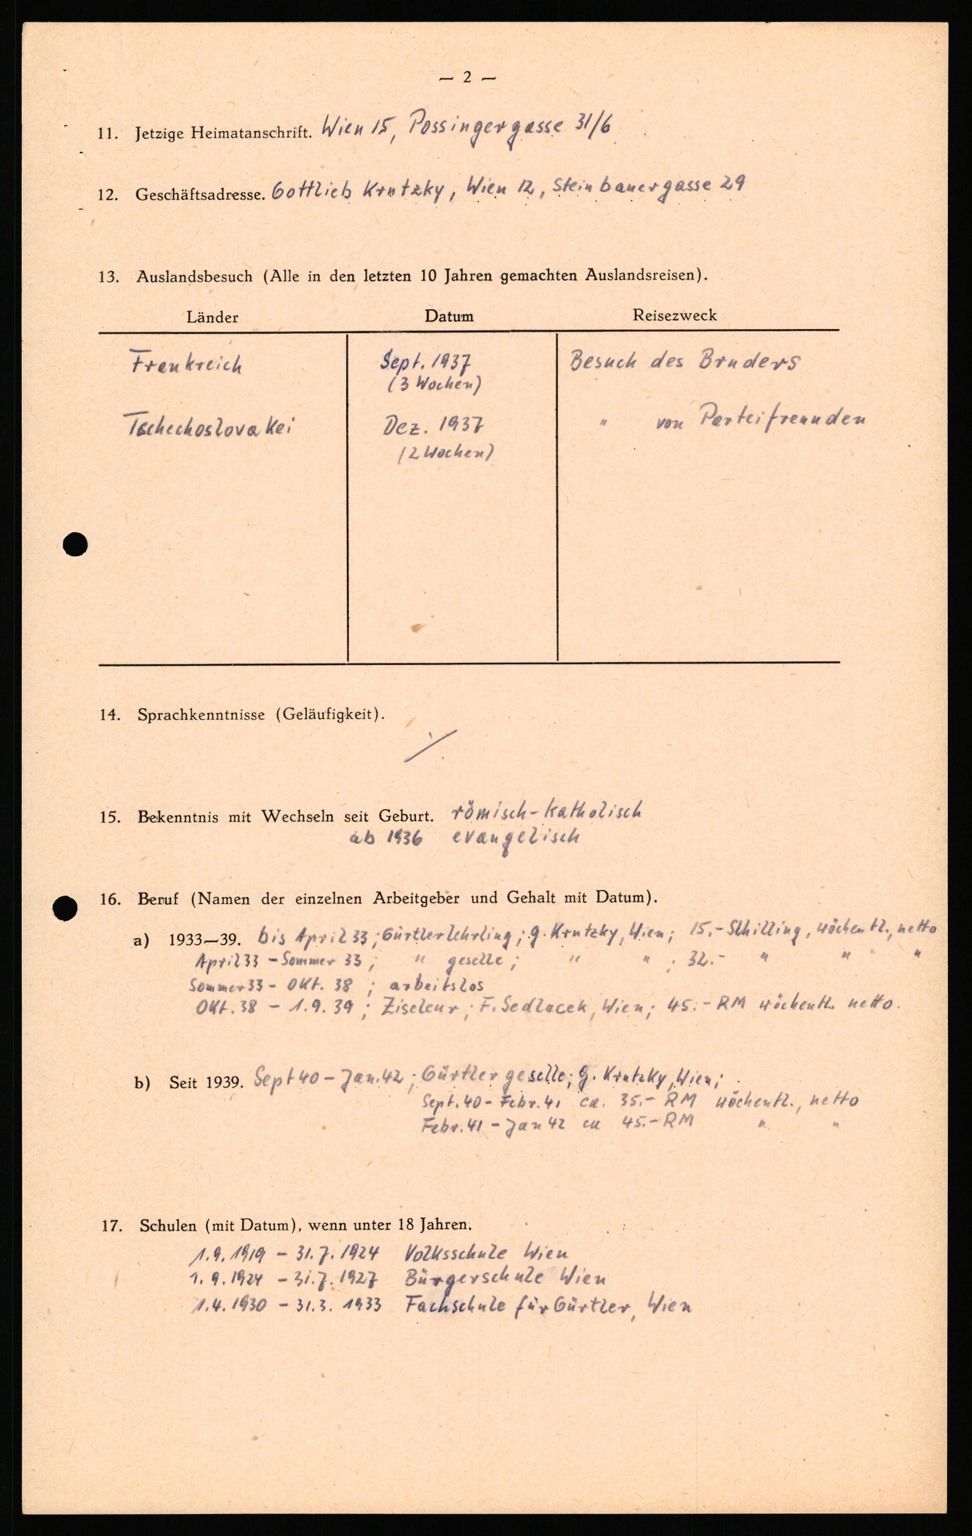 — 2 —
11. Jetzige Heimatanschrift. Wien 15, Possingergasse 31/6
12. Geschäftsadresse. Gottlieb Krutzky, Wien 12, Steinbauergasse 29
13. Auslandsbesuch (Alle in den letzten 10 Jahren gemachten Auslandsreisen).
Länder Datum Reisezweck
Frankreich Sept. 1937 Besuch des Bruders
(3 Wochen)
Tschechoslovakei Dez. 1937 " von Parteifreunden
(2 Wochen)
14. Sprachkenntnisse (Geläufigkeit).
⁒
15. Bekenntnis mit Wechseln seit Geburt. römisch-katholisch
ab 1936 evangelisch
16. Beruf (Namen der einzelnen Arbeitgeber und Gehalt mit Datum).
a) 1933—39. bis April 33; Gürtlerlehrling; G. Krutzky, Wien; 15.- Schilling, wöchentl., netto
April 33 - Sommer 33; " geselle; " " ; 32.- " " "
Sommer 33 - Okt. 38 ; arbeitslos
Okt. 38 - 1.9.39 ; Ziseleur; F. Sedlacek, Wien; 45.- RM wöchentl. netto.
b) Seit 1939. Sept 40 - Jan. 42; Gürtlergeselle; G. Krutzky, Wien;
Sept. 40 - Febr. 41 ca. 35.- RM wöchentl., netto
Febr. 41 - Jan 42 ca 45.- RM " "
17. Schulen (mit Datum), wenn unter 18 Jahren.
1.9.1919 - 31.7.1924 Volksschule Wien
1.9.1924 - 31.7.1927 Bürgerschule Wien
1.4.1930 - 31.3.1933 Fachschule für Gürtler, Wien